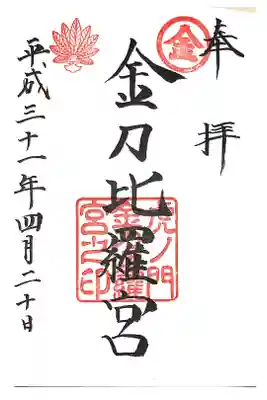 奉拝
金
金刀比羅宮
虎ノ門
金刀比羅
宮之印
平成三十一年四月二十日